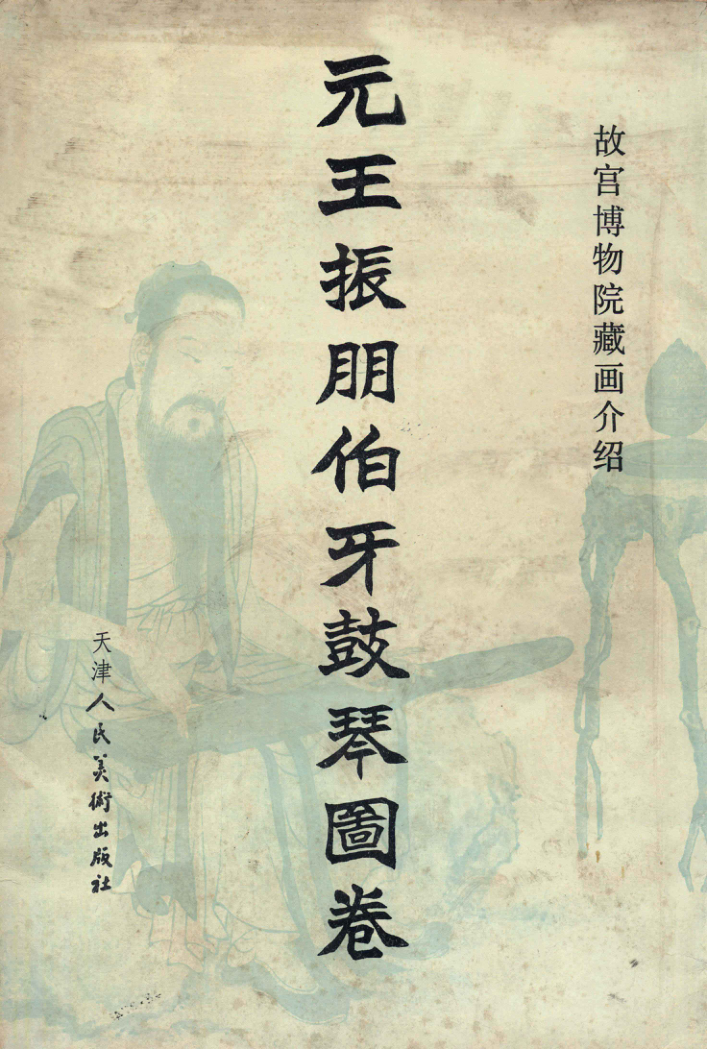 故宫博物院藏画介绍
元王振朋伯牙鼓琴圖卷
天津人民美術出版社